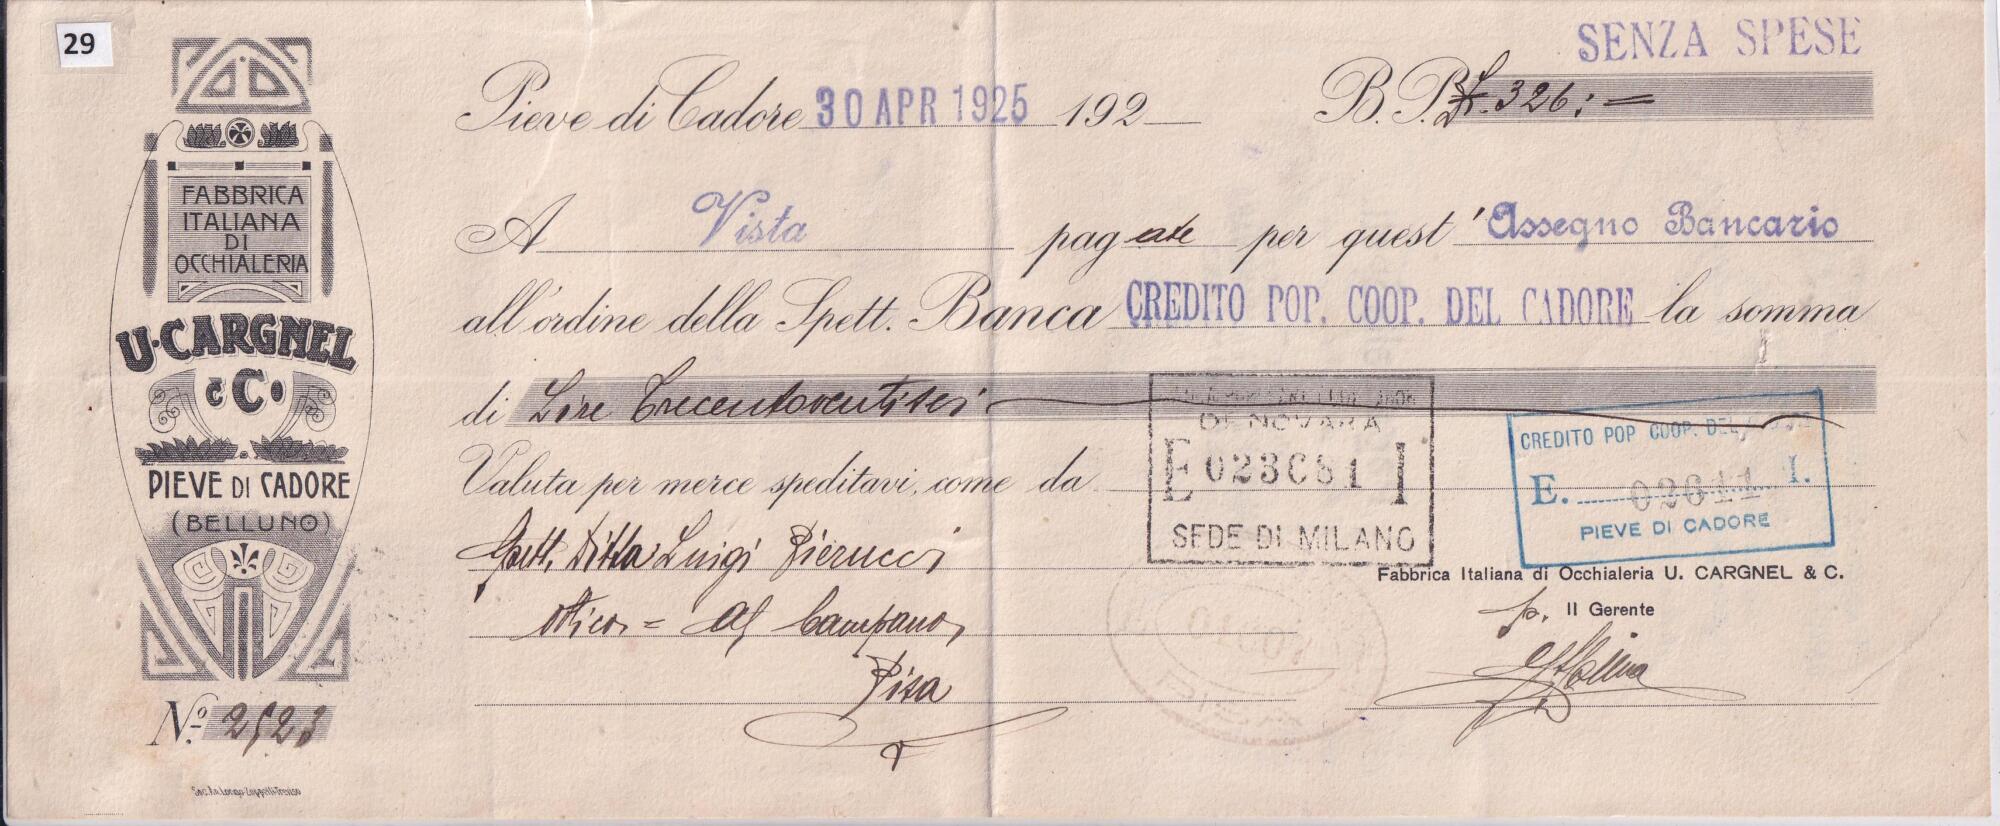 29
SENZA SPESE
Pieve di Cadore 30 APR 1925 192 B. P. L. 326:=
FABBRICA
ITALIANA
DI
OCCHIALERIA
U. CARGNEL
& C.
PIEVE DI CADORE
(BELLUNO)
No. 2523
A Vista pagate per quest' Assegno Bancario
all'ordine della Spett. Banca CREDITO POP. COOP. DEL CADORE la somma
di Lire Trecentoventisei
Valuta per merce speditavi, come da
Spett. Ditta Luigi Pierucci
Ottico = Al Campano,
Pisa
DI NOVARA
E 023C81 I
SEDE DI MILANO
CREDITO POP COOP. DEL
E. 02611 I.
PIEVE DI CADORE
Fabbrica Italiana di Occhialeria U. CARGNEL & C.
p. Il Gerente